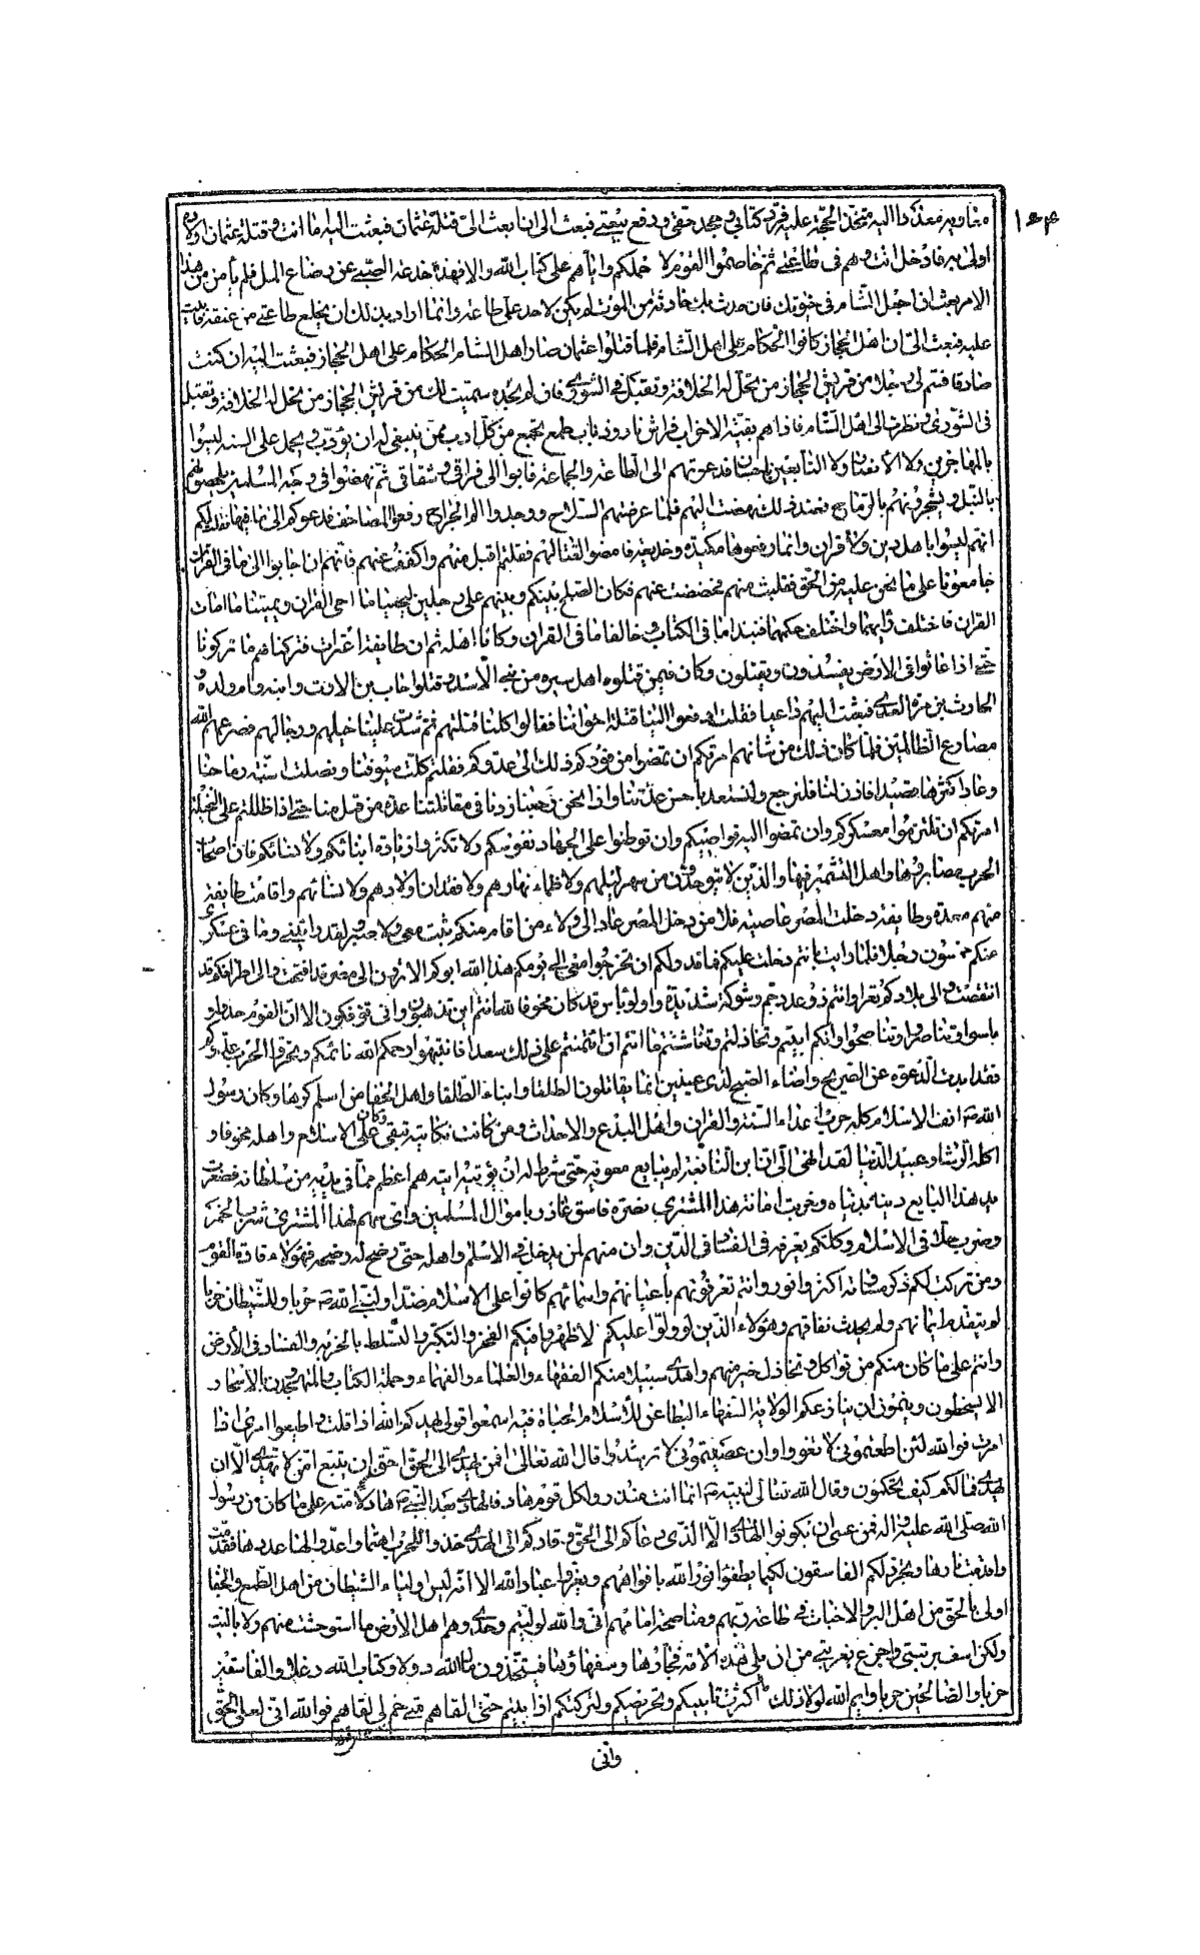 معاوية معذرا اليه متخذ الحجة عليه فرد كتابي وجحد حقي ودفع بيعتي فبعث الى ان ابعث الىّ قتلة عثمان فبعثت اليه ما انت وقتلة عثمان اولاده
اولى به فادخل انت وهم في طاعتي ثم خاصموا القوم لاحملكم واياهم على كتاب الله والا فهذه خدعة الصبي عن رضاع الملي فلما يأس من هذا
الامر بعث ان اجعل الشام لي حيوتك فان حدث بك حادثة من الموت لم يكن لاحد على طاعة وانما اراد بذلك ان يخلع طاعتي من عنقه فابيت
عليه فبعث الىّ ان اهل الحجاز كانوا الحكام على اهل الشام فلما قتلوا عثمان صار اهل الشام الحكام على اهل الحجاز فبعثت اليه ان كنت
صادقا فسم لي رجلا من قريش الحجاز من تحل له الخلافة ويقبل في الشورى فان لم تجده سميت لك من قريش الحجاز من تحل له الخلافة ويقبل
في الشورى ونظرت الى اهل الشام فاذا هم بقية الاحزاب فراش نار وذباب طمع تجمع من كل اوب ممن ينبغي له ان يؤدب ويحمل على السنة ليسوا
بالمهاجرين ولا الانصار ولا التابعين باحسان فدعوتهم الى الطاعة والجماعة فابوا الا فراقي وشقاقي ثم نهضوا في وجه المسلمين ينضحونهم
بالنبل ويشجرونهم بالرماح فعند ذلك نهضت اليهم فلما عضتهم السلاح ووجدوا الم الجراح رفعوا المصاحف فدعوكم الى ما فيها فانبأتكم
انهم ليسوا باهل دين ولا قران وانما رفعوها مكيدة وخديعة فامضوا لقتالهم فقلتم اقبل منهم واكفف عنهم فانهم ان اجابوا الى ما في القران
جامعونا على ما نحن عليه من الحق فقبلت منهم وكففت عنهم فكان الصلح بينكم وبينهم على رجلين ليحييا ما احيى القران ويميتا ما امات
القران فاختلف رايهما واختلف حكمهما فنبذا ما في الكتاب وخالفا ما في القران وكانا اهله ثم ان طايفة اعتزلت فتركناهم ما تركونا
حتى اذا عاثوا في الارض يفسدون ويقتلون وكان فيمن قتلوه اهل ميرة من بني الاسد وقتلوا خباب بن الارت وابنه وام ولده و
الحارث بن مرة العبدي فبعثت اليهم داعيا فقلت ادفعوا الينا قتلة اخواننا فقالوا كلنا قتلتهم ثم شدت علينا خيلهم ورجالهم فصرعهم الله
مصارع الظالمين فلما كان ذلك من شانهم امرتكم ان تمضوا من فوركم ذلك الى عدوكم فقلتم كلت سيوفنا ونصلت اسنة رماحنا
وعاد اكثرها قصيدا فاذن لنا فلنرجع ولنستعد باحسن عدتنا واذا نحن رجعنا زدنا في مقاتلتنا عدة من قتل منا حتى اذا ظللتم على النخيلة
امرتكم ان تلزموا معسكركم وان تضموا اليه نواصيكم وان توطنوا على الجهاد نفوسكم ولا تكثروا زيارة ابنائكم ولا نسائكم فان اصحاب
الحرب مصابروها واهل التشمير فيها والذين لا يتوجدون من سهر ليلهم ولا ظماء نهارهم ولا فقدان اولادهم ولا نسائهم واقامت طايفة
منهم معدة وطايفة دخلت المصر عاصية فلا من دخل المصر عاد الي ولا من اقام منكم ثبت معي ولا صبر ولقد رايتني وما في عسكري
منكم خمسون رجلا فلما رايت ما انتم دخلت عليكم فما قدر لكم ان تخرجوا معي الى يومكم هذا لله ابوكم الا ترون الى مصر قد افتتحت والى اطرافكم قد
انتقصت والى بلادكم تغزا وانتم ذوو عدد جم وشوكة شديدة واولو باس قد كان مخوفا لله انتم اين تذهبون وانى توفكون الا ان القوم جدوا و
باسوا وتناصروا وتناصحوا وانكم ابيتم وتخاذلتم وتغاششتم ما انتم ان اتممتم على ذلك سعدا فانتبهوا رحمكم الله نائمكم وتحزوا لحرب عدوكم
فقد ابدت الدعوة عن الصريح واضاء الصبح لذي عينين انما يقاتلون الطلقا وابناء الطلقا واهل الجفا من اسلم كرها وكان لرسول
الله ص انف الاسلام كله حربا اعداء السنة والقران واهل البدع والاحداث ومن كانت نكايته تتقى وكان على الاسلام واهله مخوفا و
اكلة الرشا وعبيد الدنيا لقد انهى الىّ ان ابن النابغة لم يبايع معوية حتى شرط له ان يؤتيه اتية هي اعظم مما في يديه من سلطانه فصفرت
يد هذا البايع دينه بدنياه وخربت امانة هذا المشتري بنصرة فاسق غادر باموال المسلمين واي سهم لهذا المشتري شرب الخمر
وضرب حدا في الاسلام وكلكم يعرفه في الفساد في الدين وان منهم لمن يدخل في الاسلام واهله حتى رضخ له رضيخة فهؤلاء قادة القوم
ومن تركت لكم ذكر مساويه اكثر وابور وانتم تعرفونهم باعيانهم واسمائهم كانوا على الاسلام ضدا ولنبي الله ص حربا وللشيطان حزبا
لم يتقدم ايمانهم ولم يحدث نفاقهم وهؤلاء الذين لو ولوا عليكم لاظهروا فيكم الفخر والتكبر والتسلط بالجبرية والفساد في الارض
وانتم على ما كان منكم من تواكل وتخاذل خير منهم واهدى سبيلا منكم الفقهاء والعلماء والفهماء وحملة الكتاب والمتهجدون بالاسحار
الا تسخطون وينقمون ان ينازعكم الولاية السفهاء البطاء عن الاسلام الجفاة فيه اسمعوا قولي يهدكم الله اذا قلت واطيعوا امري اذا
امرت فوالله لئن اطعتموني لا تغووا وان عصيتموني لا ترشدوا قال الله تعالى افمن يهدي الى الحق احق ان يتبع امن لا يهدي الا ان
يهدى فما لكم كيف تحكمون وقال الله تعالى لنبيه ص انما انت منذر ولكل قوم هاد فالهادي بعد النبي ص هاد لامته على ما كان من رسول
الله صلى الله عليه واله فمن عسى ان يكون الهادي الا الذي دعاكم الى الحق وقادكم الى الهدى خذوا للحرب اهبتها واعدوا لها عدتها فقد شبت
واوقدت نارها وتجرد لكم الفاسقون لكيما يطفؤا نور الله بافواههم ويغزوا عباد الله الا انه ليس اولياء الشيطان من اهل الطمع والجفا
اولى بالحق من اهل البر والاخبات في طاعة ربهم ومناصحة امامهم اني والله لو لقيتهم وحدي وهم اهل الارض ما استوحشت منهم ولا باليت
ولكن اسف يريبني وجزع يعتريني من ان يلي هذه الامة فجارها وسفهاؤها فيتخذون مال الله دولا وكتاب الله دغلا والفاسقين
حزبا والصالحين حربا وايم الله لولا ذلك ما اكثرت تانيبكم وتحريضكم ولتركتكم اذا ابيتم حتى القاهم متى حم لي لقاهم فوالله اني لعلى الحق
واني